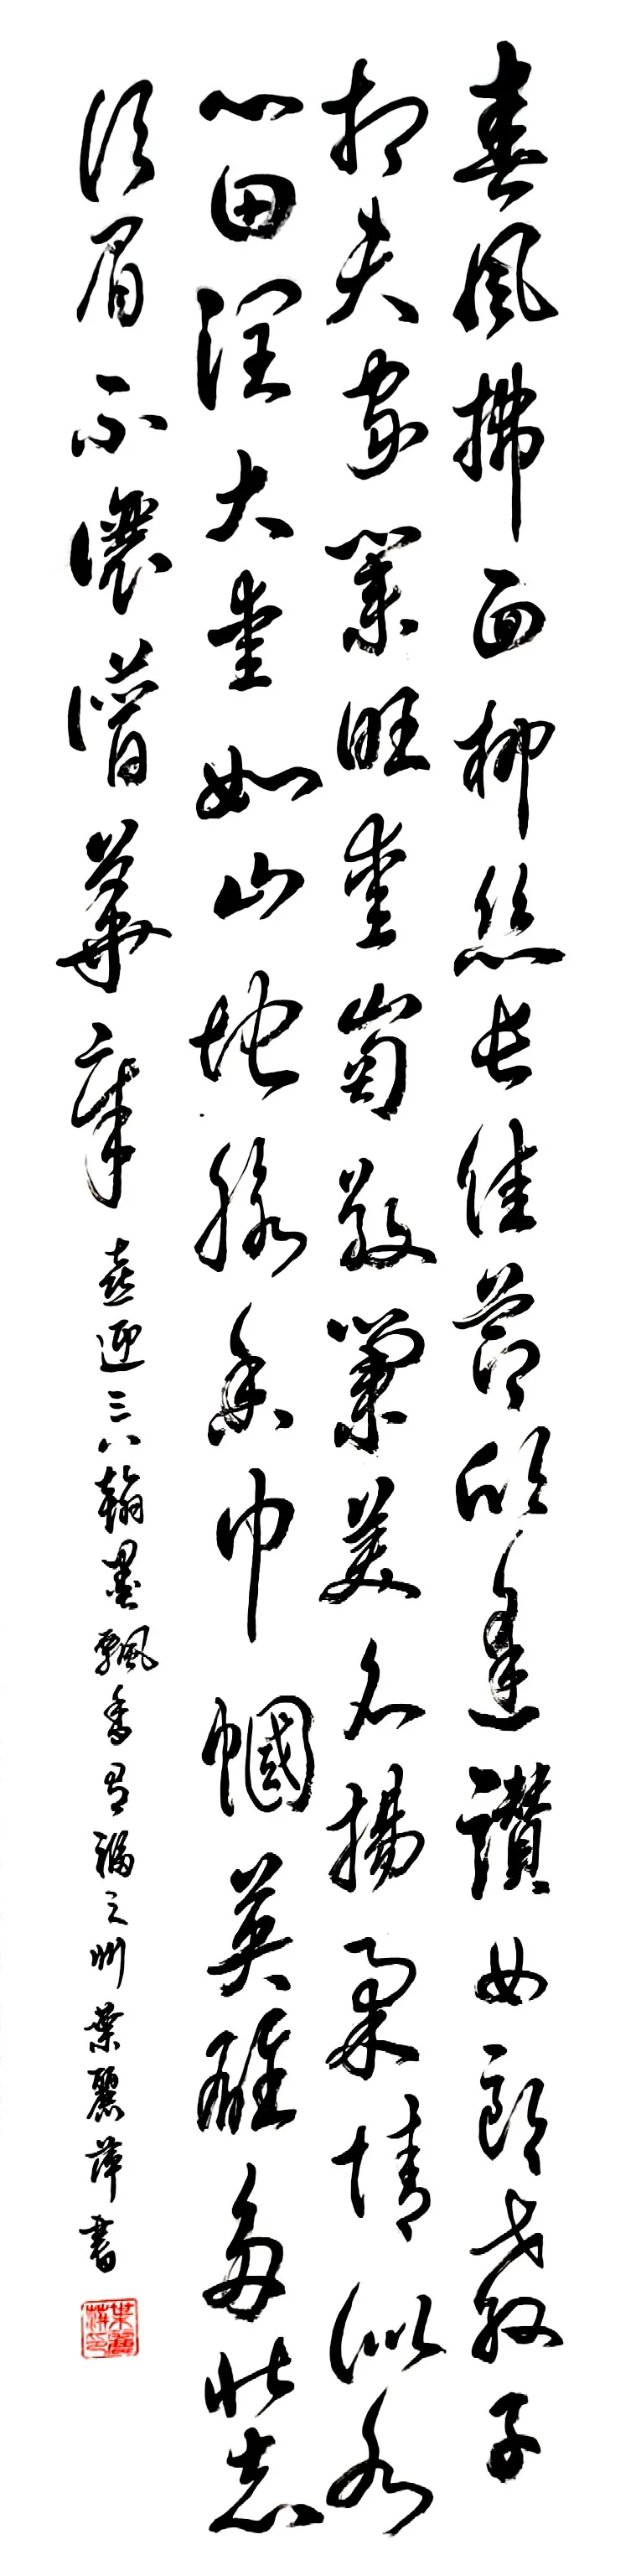 春風拂面柳絲長佳節欣逢讚女郎教子
相夫家業旺愛崗敬業美名揚柔情似水
心田潤大愛如山地脉香巾幗英雄多壯志
須眉不讓譜華章 喜迎三八翰墨飄香有福之州葉麗萍書
葉麗萍印